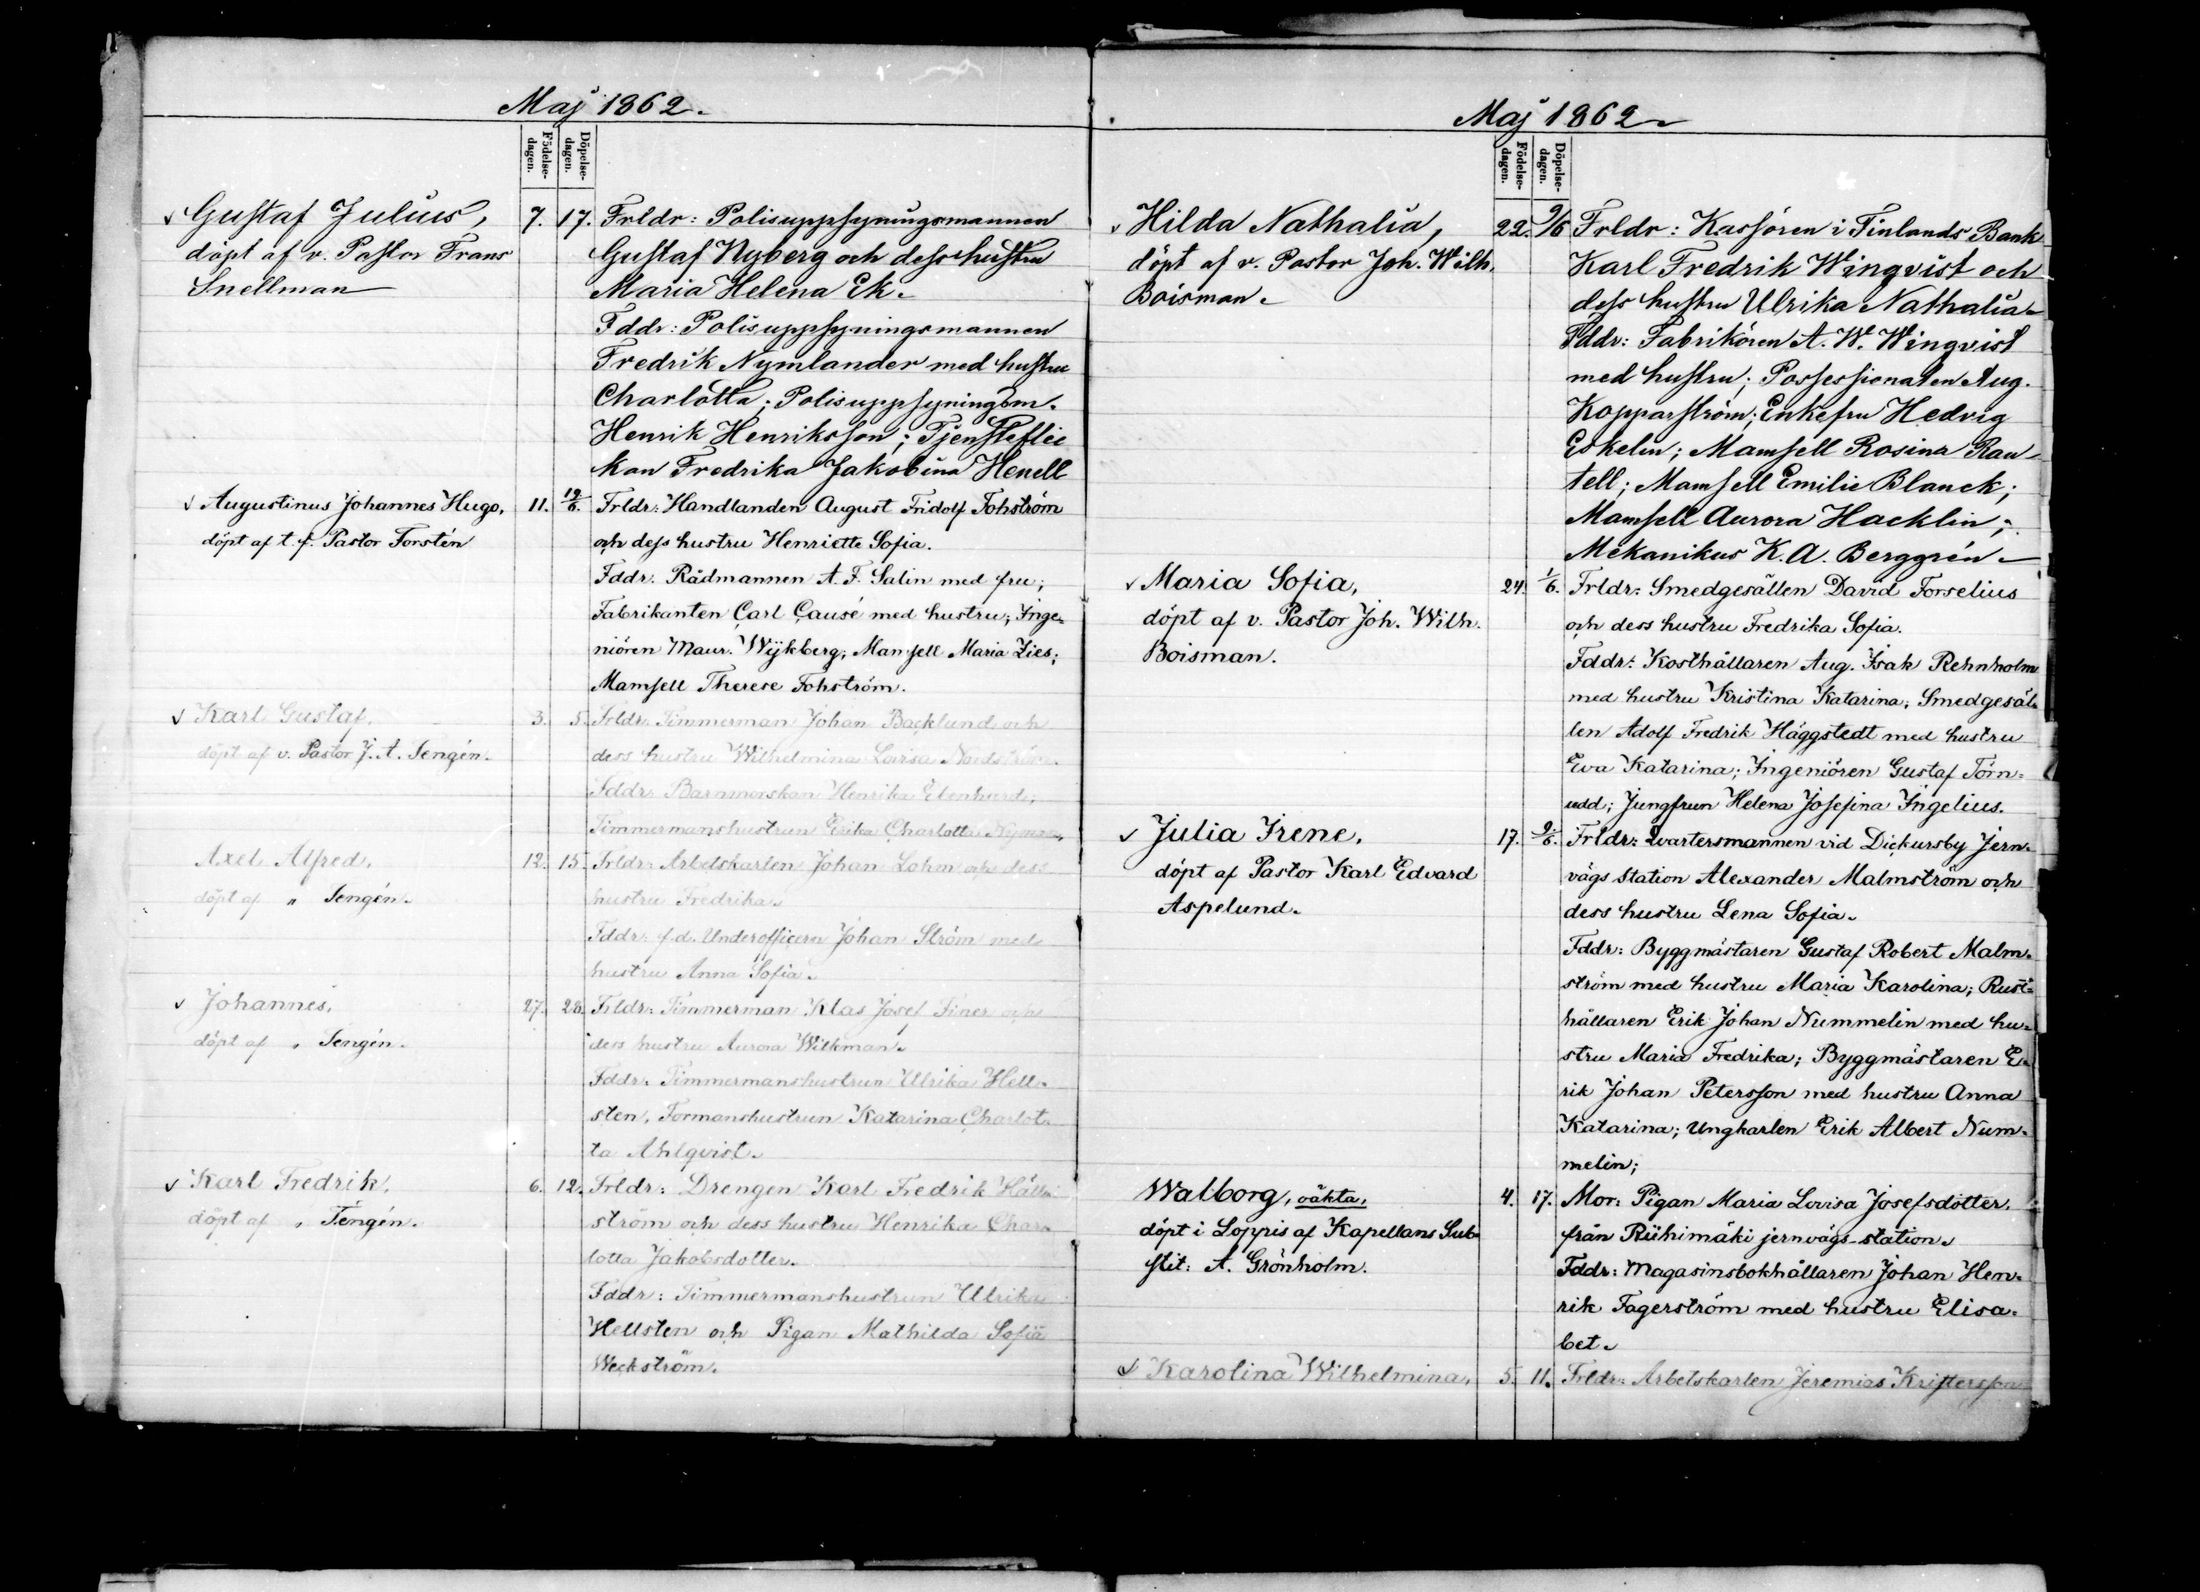 Maj 1862.
Födelse-
dagen.
Döpelse-
dagen.
Gustaf Julius,
döpt af v. Pastor Frans
Snellman
7. 17. Frldr: Polisuppsyningsmannen
Gustaf Nyberg och dess hustru
Maria Helena Ek.
Fddr: Polisuppsyningsmannen
Fredrik Nymlander med hustru
Charlotta; Polisuppsyningsm.
Henrik Henriksson; Tjensteflic
kan Fredrika Jakobina Henell
Augustinus Johannes Hugo,
döpt af t.f. Pastor Forstén
11. 19/6. Frldr: Handlanden August Fridolf Tohström
och dess hustru Henriette Sofia.
Fddr: Rådmannen A. F. Salin med fru;
Fabrikanten Carl Causé med hustru; Inge-
niören Maur. Wijkberg; Mamsell Maria Lies;
Mamsell Therese Tohström.
Karl Gustaf,
döpt af v. Pastor J. A. Tengén.
3. 5. Frldr: Timmerman Johan Backlund och
dess hustru Wilhelmina Lovisa Nordström.
Fddr: Barnmorskan Henrika
Timmermanshustrun Erika Charlotta Nyman.
Axel Alfred,
döpt af " Tengén.
12. 15. Frldr: Arbetskarlen Johan Lohm och dess
hustru Fredrika.
Fddr: f.d. Underofficern Johan Ström med
hustru Anna Sofia.
Johannes,
döpt af " Tengén.
27. 28. Frldr: Timmerman Klas Josef Finer och
dess hustru Aurora Wilkman.
Fddr: Timmermanshustrun Ulrika Hell-
sten, Formanshustrun Katarina Charlot-
ta Ahlqvist.
Karl Fredrik,
döpt af " Tengén.
6. 12. Frldr: Drengen Karl Fredrik Häll-
ström och dess hustru Henrika Char-
lotta Jakobsdotter.
Fddr: Timmermanshustrun Ulrika
Hellsten och Pigan Mathilda Sofia
Weckström.
Maj 1862
Födelse-
dagen.
Döpelse-
dagen.
Hilda Nathalia,
döpt af v. Pastor Joh. Wilh.
Boisman.
22. 9/6 Frldr: Kassören i Finlands Bank
Karl Fredrik Wingvist och
dess hustru Ulrika Nathalia.
Fddr: Fabrikören A. W. Wingvist
med hustru; Possessionaten Aug.
Kopparström; Enkefru Hedvig
Eskelin; Mamsell Rosina Ran-
tell; Mamsell Emilie Blanck;
Mamsell Aurora Hacklin;
Mekanikus K. A. Berggrén.
Maria Sofia,
döpt af v. Pastor Joh. Wilh.
Boisman.
24. 1/6. Frldr: Smedgesällen David Forselius
och dess hustru Fredrika Sofia.
Fddr: Kosthållaren Aug. Isak Rehnholm
med hustru Kristina Katarina; Smedgesäl-
len Adolf Fredrik Häggstedt med hustru
Eva Katarina; Ingeniören Gustaf Törn-
udd; Jungfrun Helena Josefina Ingelius.
Julia Irene,
döpt af Pastor Karl Edvard
Aspelund.
17. 9/6. Frldr: Qvartersmannen vid Dickursby Jern-
vägs station Alexander Malmström och
dess hustru Lena Sofia.
Fddr: Byggmästaren Gustaf Robert Malm-
ström med hustru Maria Karolina; Rust-
hållaren Erik Johan Nummelin med hu-
stru Maria Fredrika; Byggmästaren E-
rik Johan Petersson med hustru Anna
Katarina; Ungkarlen Erik Albert Num-
melin;
Walborg, oäkta,
döpt i Loppis af Kapellans Sub-
stit: A. Grönholm.
4. 17. Mor: Pigan Maria Lovisa Josefsdotter,
från Riihimäki jernvägs-station.
Fddr: Magasinsbokhållaren Johan Hen-
rik Fagerström med hustru Elisa-
bet.
Karolina Wilhelmina,
5. 11. Frldr: Arbetskarlen Jeremias Kristersson